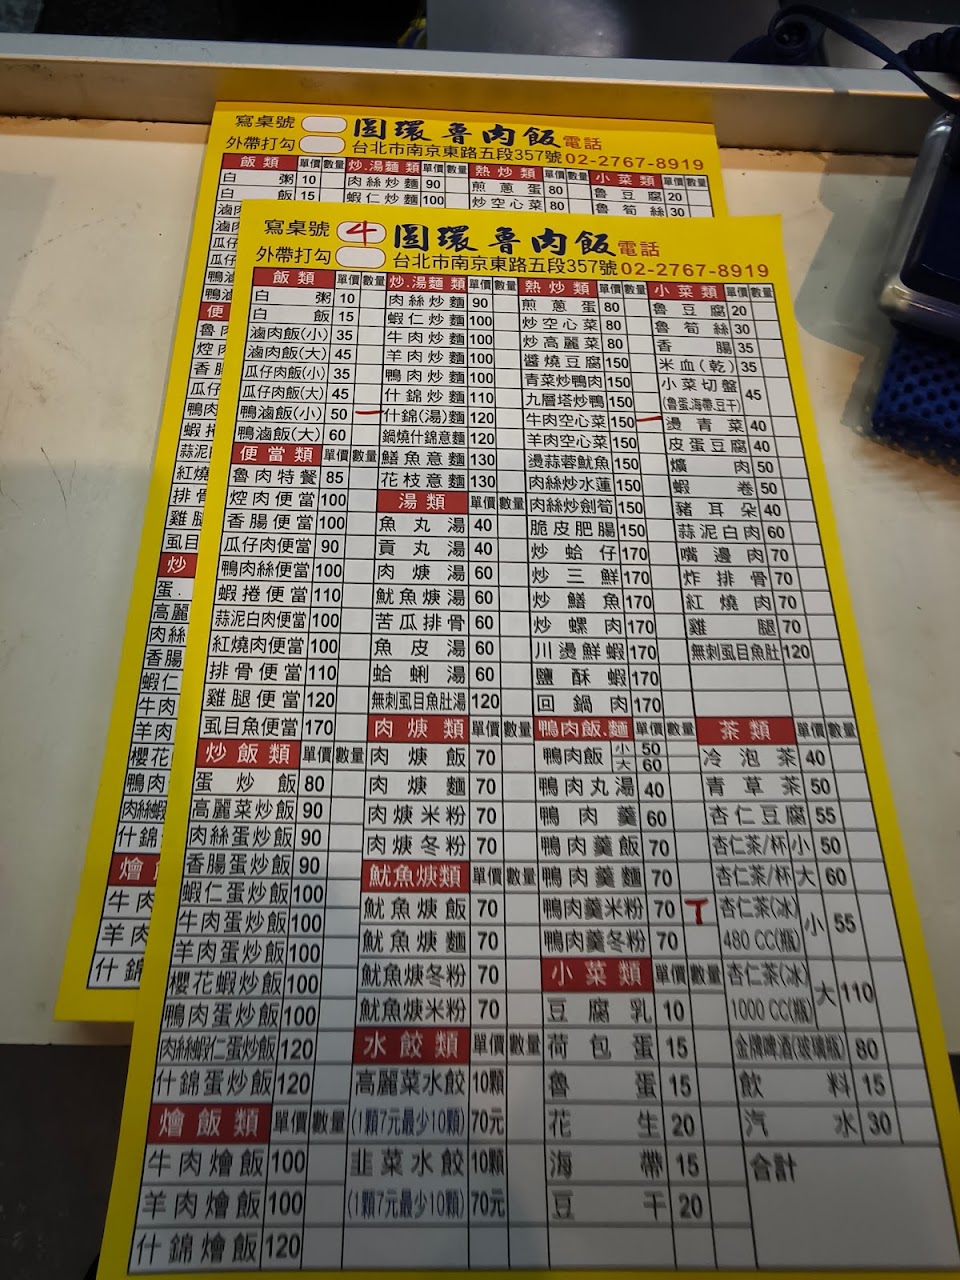 寫桌號
外帶打勾
圓環魯肉飯 電話
台北市南京東路五段357號 02-2767-8919
飯類 單價 數量 炒.湯麵類 單價 數量 熱炒類 單價 數量 小菜類 單價 數量
白粥 10 肉絲炒麵 90 煎蔥蛋 80 魯豆腐 20
白飯 15 蝦仁炒麵 100 炒空心菜 80 魯筍絲 30
寫桌號 4
外帶打勾
圓環魯肉飯 電話
台北市南京東路五段357號 02-2767-8919
飯類 單價 數量
白粥 10
白飯 15
滷肉飯(小) 35
滷肉飯(大) 45
瓜仔肉飯(小) 35
瓜仔肉飯(大) 45
鴨滷飯(小) 50 一
鴨滷飯(大) 60
便當類 單價 數量
魯肉特餐 85
焢肉便當 100
香腸便當 100
瓜仔肉便當 90
鴨肉絲便當 100
蝦捲便當 110
蒜泥白肉便當 100
紅燒肉便當 100
排骨便當 110
雞腿便當 120
虱目魚便當 170
炒飯類 單價 數量
蛋炒飯 80
高麗菜炒飯 90
肉絲蛋炒飯 90
香腸蛋炒飯 90
蝦仁蛋炒飯 100
牛肉蛋炒飯 100
羊肉蛋炒飯 100
櫻花蝦炒飯 100
鴨肉蛋炒飯 100
肉絲蝦仁蛋炒飯 120
什錦蛋炒飯 120
燴飯類 單價 數量
牛肉燴飯 100
羊肉燴飯 100
什錦燴飯 120
炒.湯麵類 單價 數量
肉絲炒麵 90
蝦仁炒麵 100
牛肉炒麵 100
羊肉炒麵 100
鴨肉炒麵 100
什錦炒麵 110
什錦(湯)麵 120
鍋燒什錦意麵 120
鱔魚意麵 130
花枝意麵 130
湯類 單價 數量
魚丸湯 40
貢丸湯 40
肉焿湯 60
魷魚焿湯 60
苦瓜排骨 60
魚皮湯 60
蛤蜊湯 60
無刺虱目魚肚湯 120
肉焿類 單價 數量
肉焿飯 70
肉焿麵 70
肉焿米粉 70
肉焿冬粉 70
魷魚焿類 單價 數量
魷魚焿飯 70
魷魚焿麵 70
魷魚焿冬粉 70
魷魚焿米粉 70
水餃類 單價 數量
高麗菜水餃 10顆
(1顆7元最少10顆) 70元
韭菜水餃 10顆
(1顆7元最少10顆) 70元
熱炒類 單價 數量
煎蔥蛋 80
炒空心菜 80
炒高麗菜 80
醬燒豆腐 150
青菜炒鴨肉 150
九層塔炒鴨 150
牛肉空心菜 150 一
羊肉空心菜 150
燙蒜蓉魷魚 150
肉絲炒水蓮 150
肉絲炒劍筍 150
脆皮肥腸 150
炒蛤仔 170
炒三鮮 170
炒鱔魚 170
炒螺肉 170
川燙鮮蝦 170
鹽酥蝦 170
回鍋肉 170
鴨肉飯.麵 單價 數量
鴨肉飯 小 50
大 60
鴨肉丸湯 40
鴨肉羹 60
鴨肉羹飯 70
鴨肉羹麵 70
鴨肉羹米粉 70
鴨肉羹冬粉 70
小菜類 單價 數量
豆腐乳 10
荷包蛋 15
魯蛋 15
花生 20
海帶 15
豆干 20
小菜類 單價 數量
魯豆腐 20
魯筍絲 30
香腸 35
米血(乾) 35
小菜切盤 45
(魯蛋.海帶.豆干)
燙青菜 40
皮蛋豆腐 40
爌肉 50
蝦卷 50
豬耳朵 40
蒜泥白肉 60
嘴邊肉 70
炸排骨 70
紅燒肉 70
雞腿 70
無刺虱目魚肚 120
茶類 單價 數量
冷泡茶 40
青草茶 50
杏仁豆腐 55
杏仁茶/杯 小 50
杏仁茶/杯 大 60
杏仁茶(冰) 小 55
480 CC(瓶)
杏仁茶(冰) 大 110
1000 CC(瓶)
金牌啤酒(玻璃瓶) 80
飲料 15
汽水 30
合計